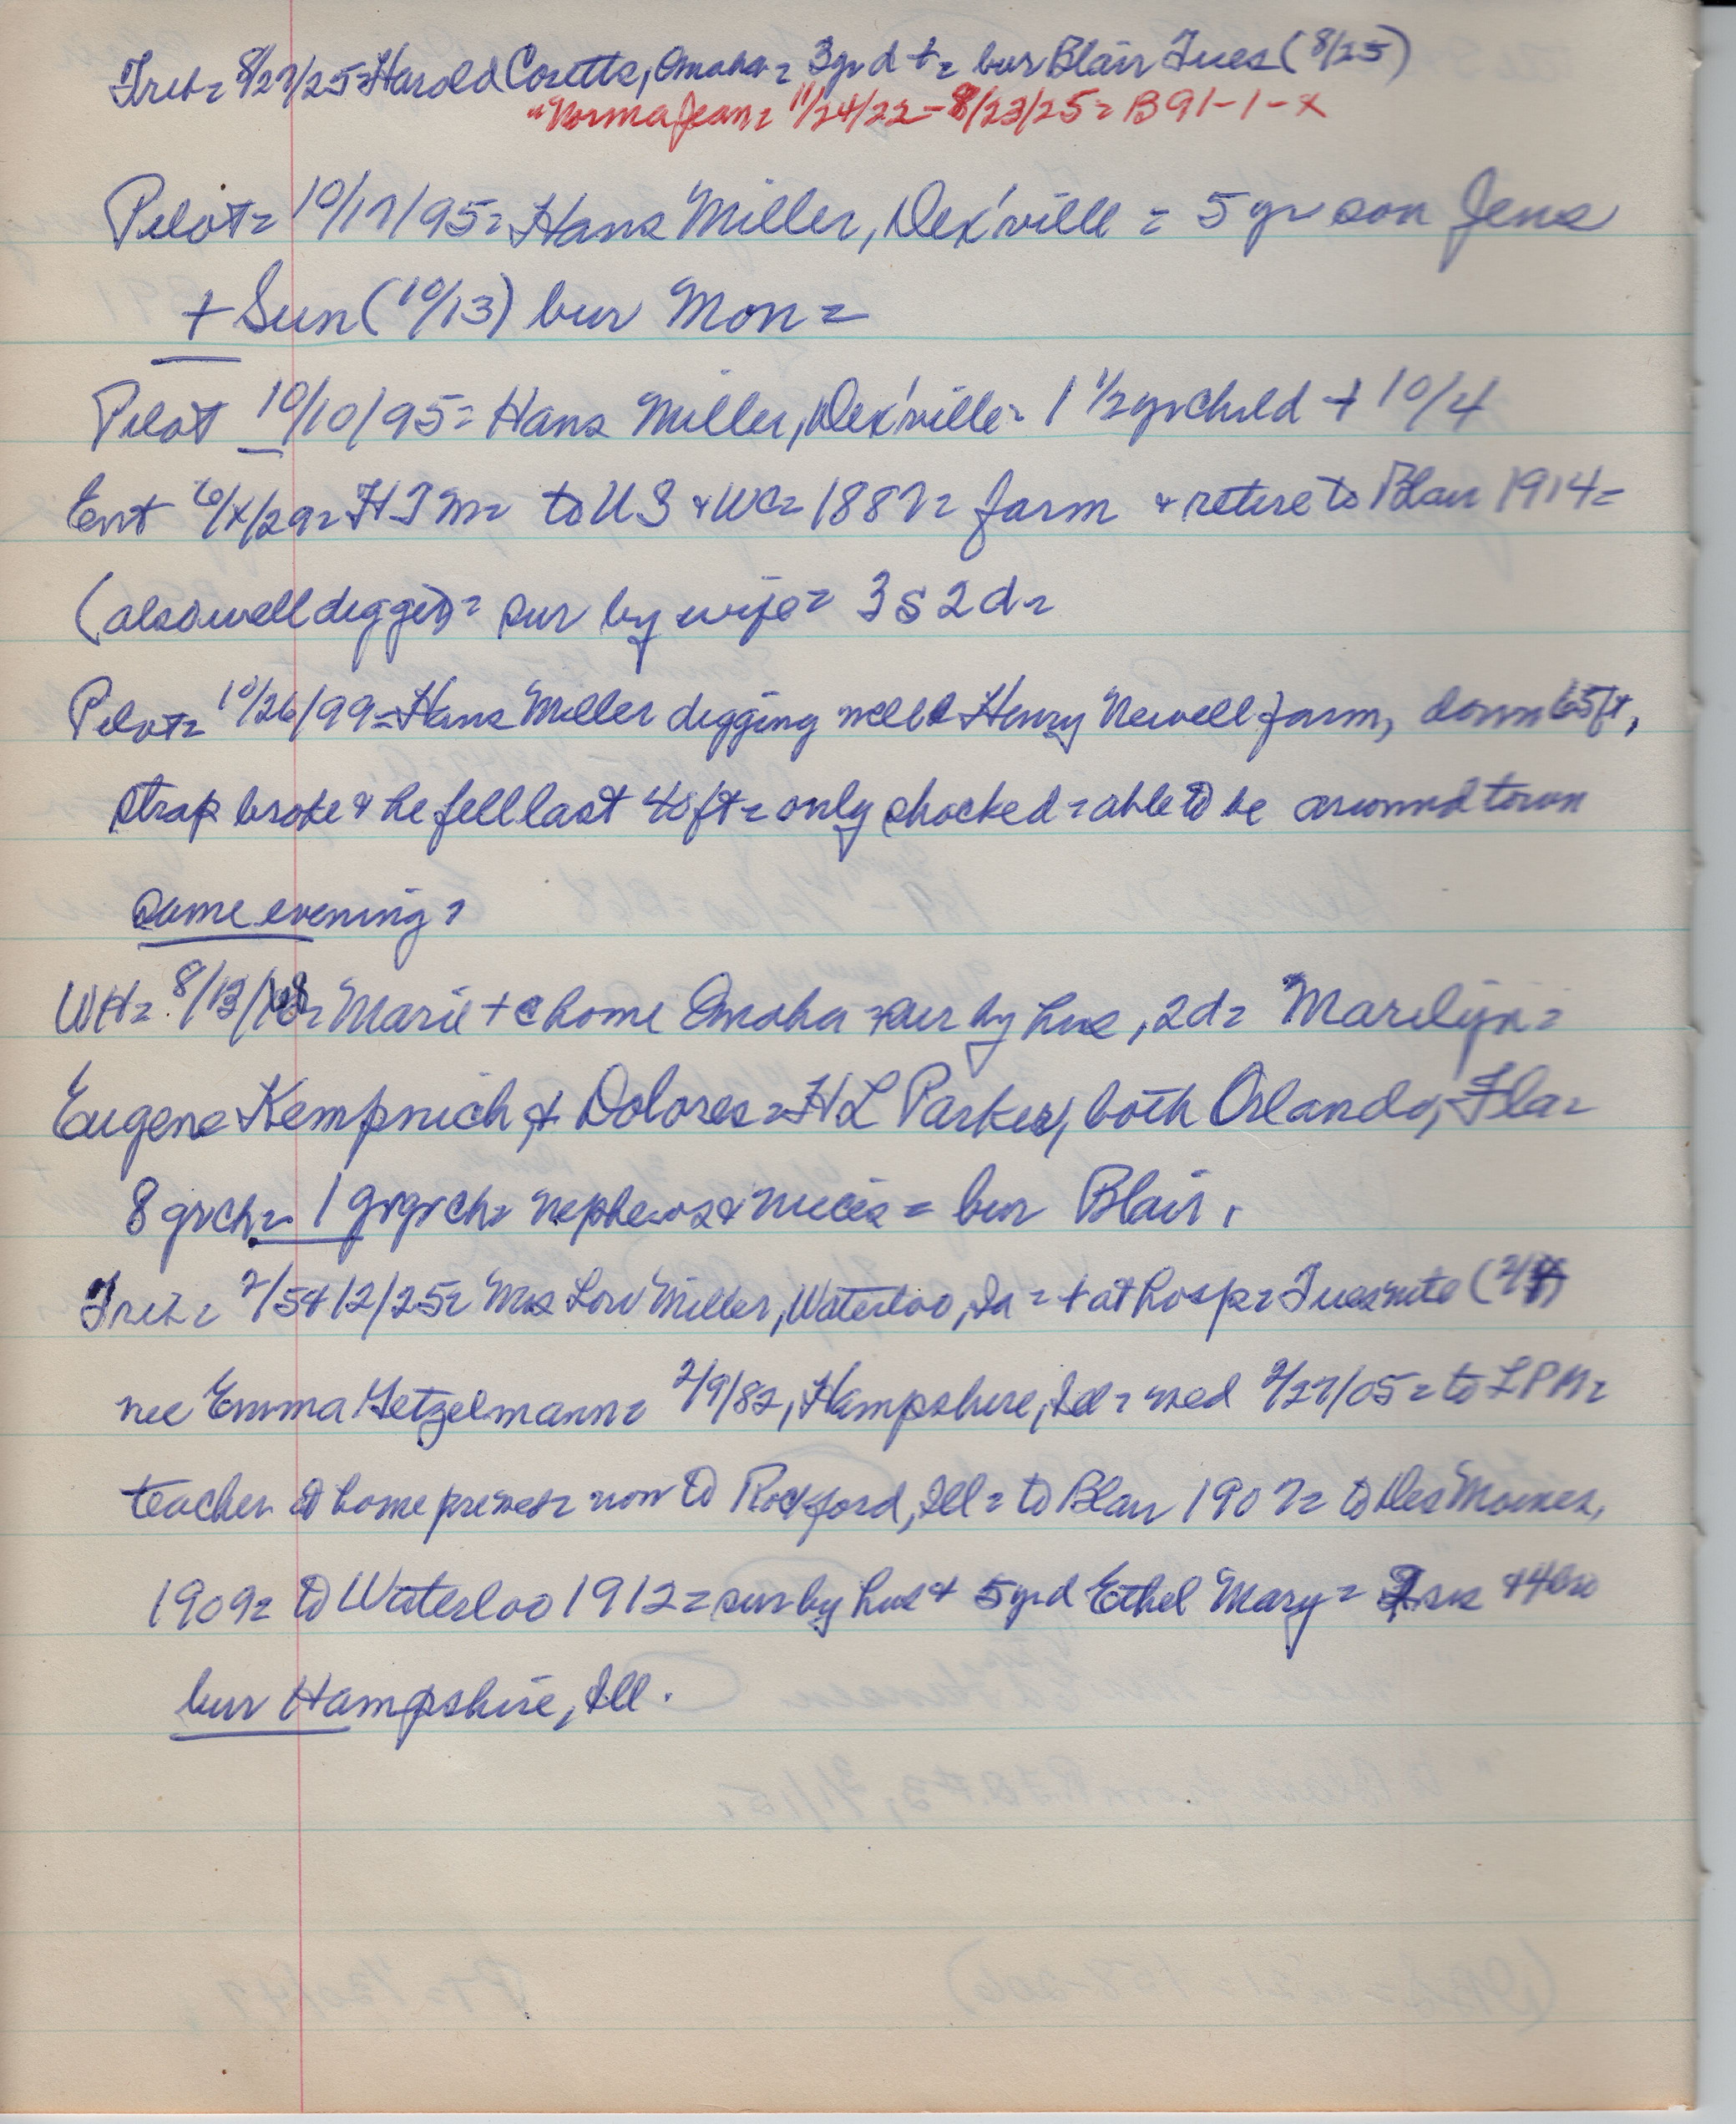 Trib= 8/27/25= Harold Cosette, Omaha= 3yr d += bur Blair Tues (8/25)
"Norma Jean= 11/24/22-8/23/25= B91-1-x
Pilot= 10/17/95= Hans Miller, Dex'ville = 5 yr son Jens
+ Sun (10/13) bur Mon=
Pilot 10/10/95= Hans Miller, Dex'ville= 1 1/2yr child + 10/4
Ent 6/x/29= HJM= to US & WC= 1887= farm & retire to Blair 1914=
(also well digger)= sur by wife= 3 s 2 d=
Pilot= 10/26/99= Hans Miller digging well @ Henry Newell farm, down 65ft,
strap broke & he fell last 40ft= only shocked= able to be around town
same evening=
WH= 8/13/68= Marie + @ home Omaha =sur by hus, 2d= Marilyn=
Eugene Kempnich & Dolores= HL Parker, both Orlando, Fla=
8 grch= 1 grgrch= nephews & nieces = bur Blair.
Trib= 2/5&12/25= Mrs Lou Miller, Waterloo, Ia = + at hosp= Tues nite
nee Emma Getzelmann= 2/9/82, Hampshire, Ill= med 9/27/05= to LPM=
teacher @ home prev = mov to Rockford, Ill= to Blair 1907= to Des Moines,
1909= to Waterloo 1912= sur by hus & 5yr d Ethel Mary= sis & 4 bro
bur Hampshire, Ill.